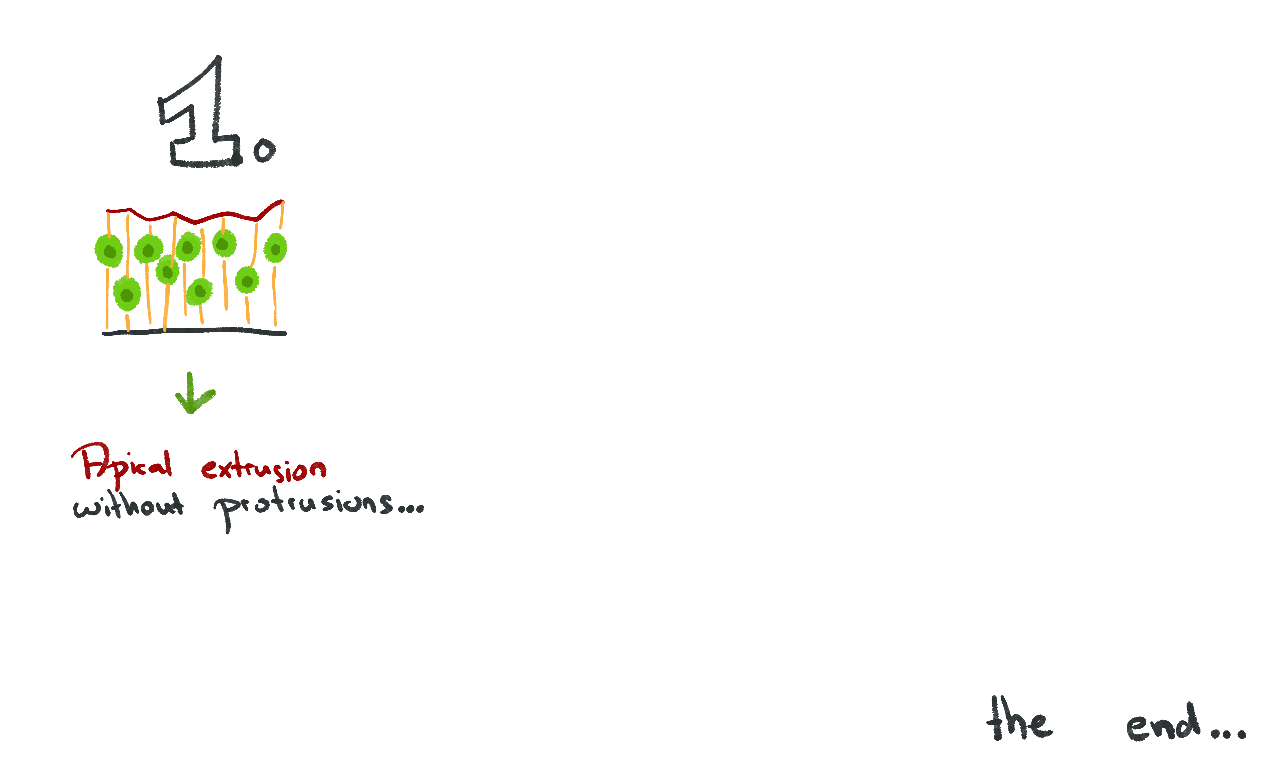 1.
Apical extrusion
without protrusions...
the end...